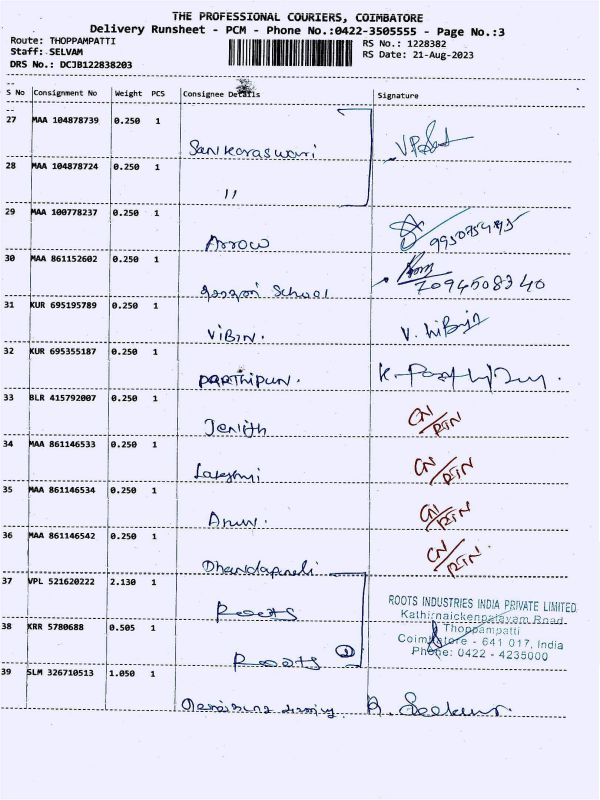 THE PROFESSIONAL COURIERS, COIMBATORE
Delivery Runsheet - PCM - Phone No.:0422-3505555 - Page No.:3
Route: THOPPAMPATTI RS No.: 1228382
Staff: SELVAM RS Date: 21-Aug-2023
DRS No.: DCJB122838203
S No Consignment No Weight PCS Consignee Details Signature
27 MAA 104878739 0.250 1
Sankaraswari
28 MAA 104878724 0.250 1
"
29 MAA 100778237 0.250 1
Arrow
30 MAA 861152602 0.250 1
School 7094508340
31 KUR 695195789 0.250 1
VIBIN. V. Vibin
32 KUR 695355187 0.250 1
PARTHIPUN. K.
33 BLR 415792007 0.250 1
Jenith CN/RTN
34 MAA 861146533 0.250 1
Lakshmi CN/RTN
35 MAA 861146534 0.250 1
Arun. CN/RTN
36 MAA 861146542 0.250 1
CN/RTN
37 VPL 521620222 2.130 1
Roots
ROOTS INDUSTRIES INDIA PRIVATE LIMITED
Kathirnaickenpalayam Road
Thoppampatti
38 KRR 5780688 0.505 1
Coimbatore - 641 017, India
Phone: 0422 - 4235000
Roots
39 SLM 326710513 1.050 1